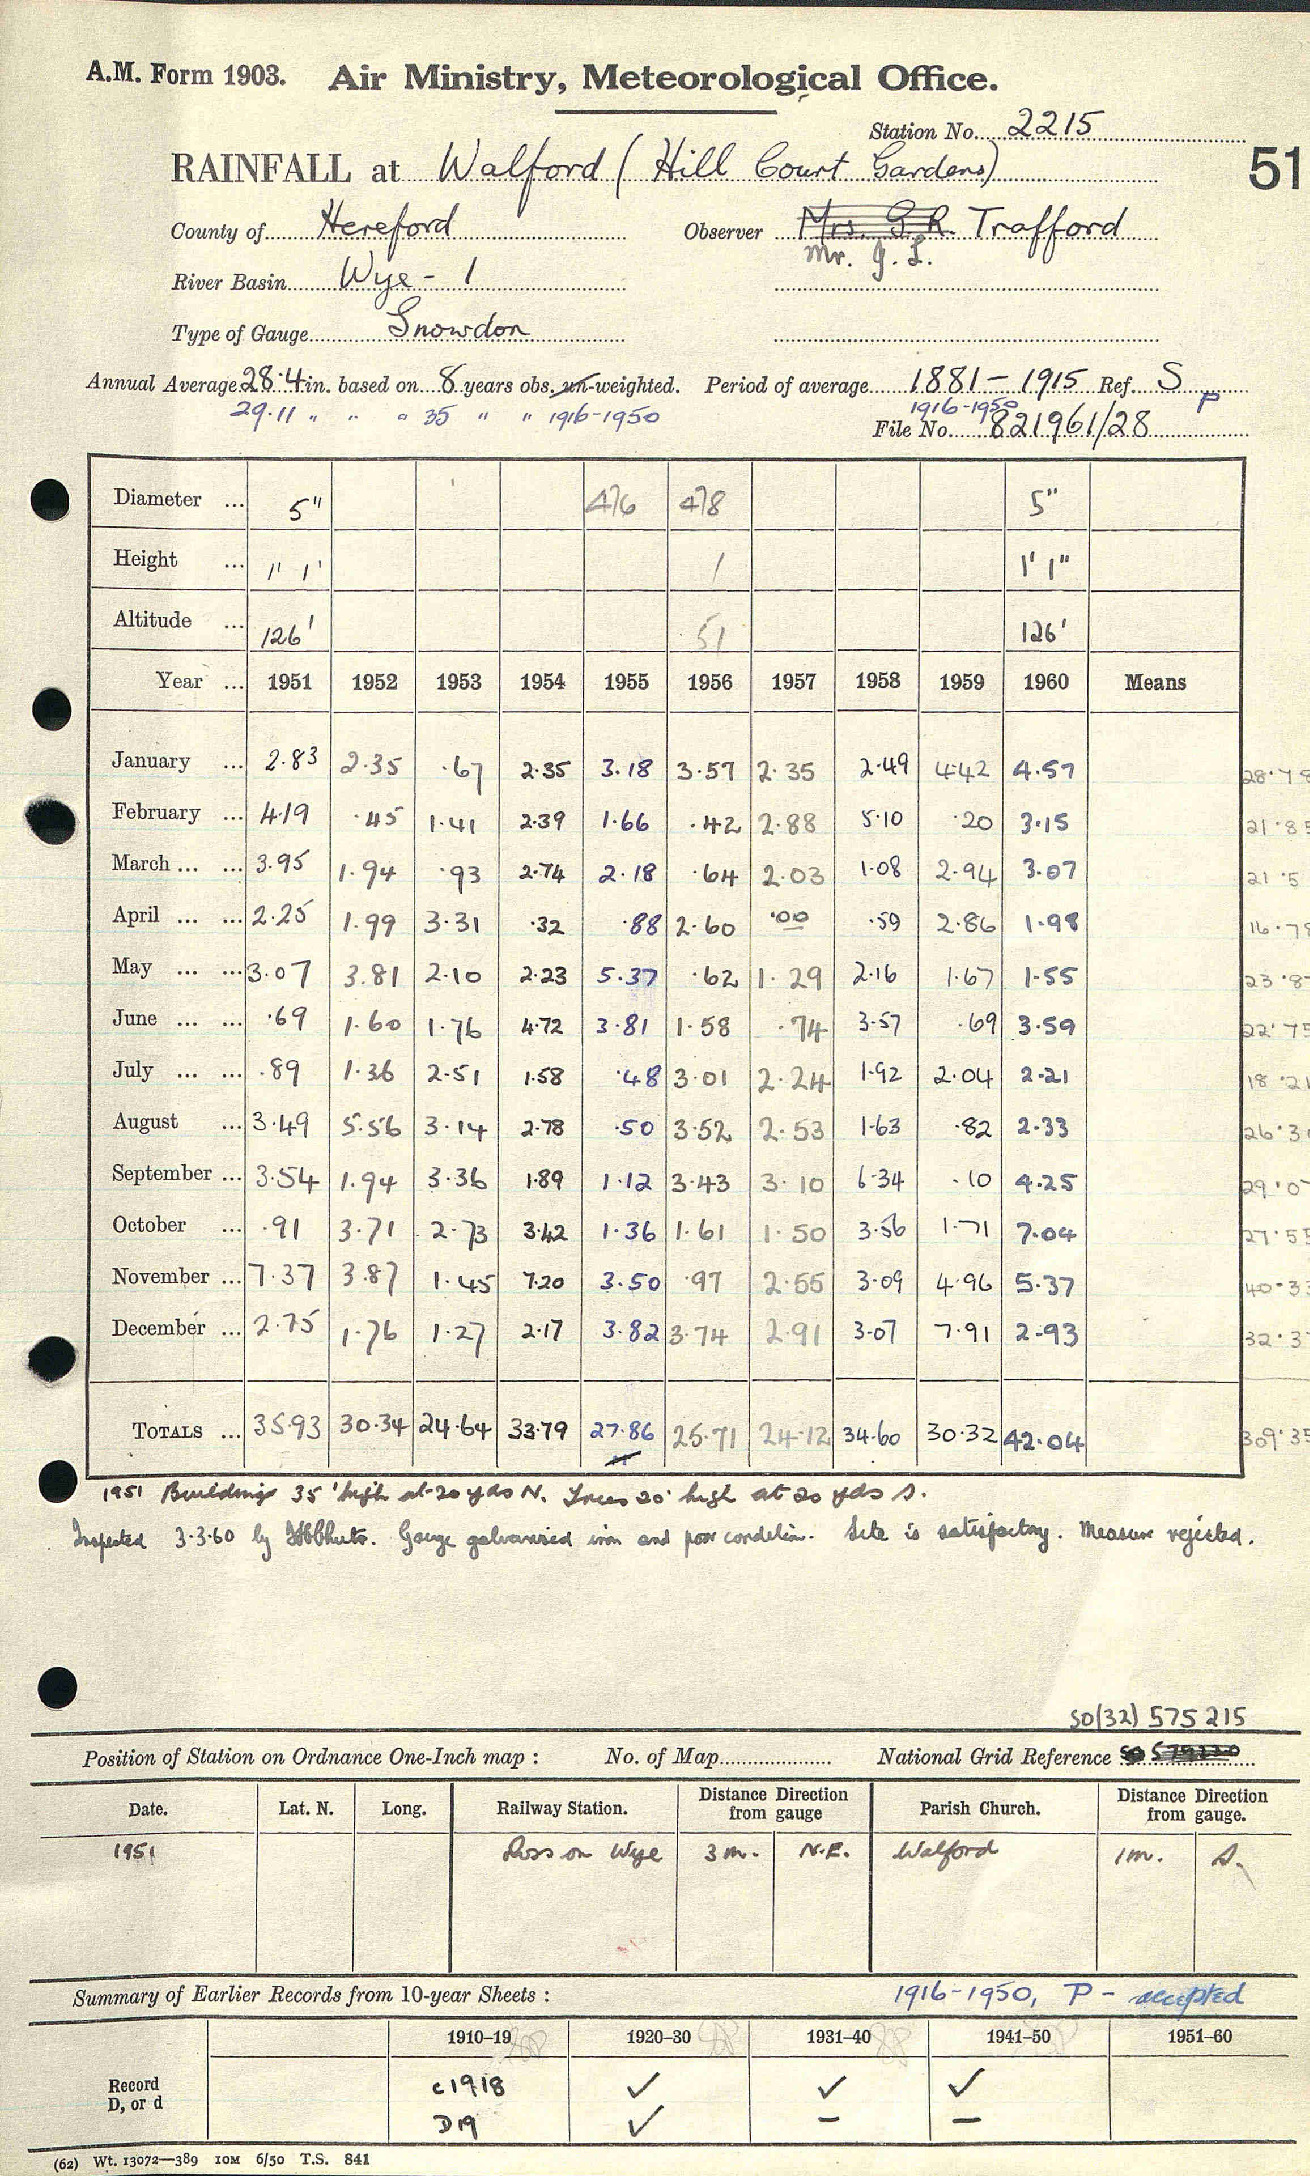 A.M. Form 1903. Air Ministry, Meteorological Office.
Station No. 2215
51
RAINFALL at Walford (Hill Court Gardens)
County of Hereford Observer Mrs. G.R. Trafford
Mr. J. L.
River Basin Wye - 1
Type of Gauge Snowdon
Annual Average 28.4 in. based on 8 years obs. un-weighted. Period of average 1881 - 1915 Ref. S
29.11 " " " 35 " " 1916-1950 1916-1950 P
File No. 821961/28
Diameter ... 5" 4/6 4/8 5"
Height ... 1' 1" 1 1' 1"
Altitude ... 126' 51 126'
Year ... 1951 1952 1953 1954 1955 1956 1957 1958 1959 1960 Means
January ... 2.83 2.35 .67 2.35 3.18 3.57 2.35 2.49 4.42 4.57 28.78
February ... 4.19 .45 1.41 2.39 1.66 .42 2.88 5.10 .20 3.15 21.85
March ... ... 3.95 1.94 .93 2.74 2.18 .64 2.03 1.08 2.94 3.07 21.5
April ... ... 2.25 1.99 3.31 .32 .88 2.60 .00 .59 2.86 1.98 16.78
May ... ... 3.07 3.81 2.10 2.23 5.37 .62 1.29 2.16 1.67 1.55 23.8
June ... ... .69 1.60 1.76 4.72 3.81 1.58 .74 3.57 .69 3.59 22.75
July ... ... .89 1.36 2.51 1.58 .48 3.01 2.24 1.92 2.04 2.21 18.21
August ... 3.49 5.56 3.14 2.78 .50 3.52 2.53 1.63 .82 2.33 26.3
September ... 3.54 1.94 3.36 1.89 1.12 3.43 3.10 6.34 .10 4.25 29.0
October ... .91 3.71 2.73 3.42 1.36 1.61 1.50 3.56 1.71 7.04 27.55
November ... 7.37 3.87 1.45 7.20 3.50 .97 2.55 3.09 4.96 5.37 40.3
December ... 2.75 1.76 1.27 2.17 3.82 3.74 2.91 3.07 7.91 2.93 32.3
TOTALS ... 35.93 30.34 24.64 33.79 27.86 25.71 24.12 34.60 30.32 42.04 309.35
1951 Buildings 35' high at 20 yds N. Trees 20' high at 20 yds S.
Inspected 3.3.60 by Gauge galvanised iron and poor condition. Site is satisfactory. Measure rejected.
SO(32) 575 215
Position of Station on Ordnance One-Inch map : No. of Map National Grid Reference
Date. Lat. N. Long. Railway Station. Distance from gauge Direction Parish Church. Distance from gauge. Direction
1951 Ross on Wye 3 m. N.E. Walford 1 m. S.
Summary of Earlier Records from 10-year Sheets : 1916-1950, P - accepted
1910–19 1920–30 1931–40 1941–50 1951–60
Record c1918 ✓ ✓ ✓
D, or d D19 ✓ – –
(62) Wt. 13072—389 10M 6/50 T.S. 841